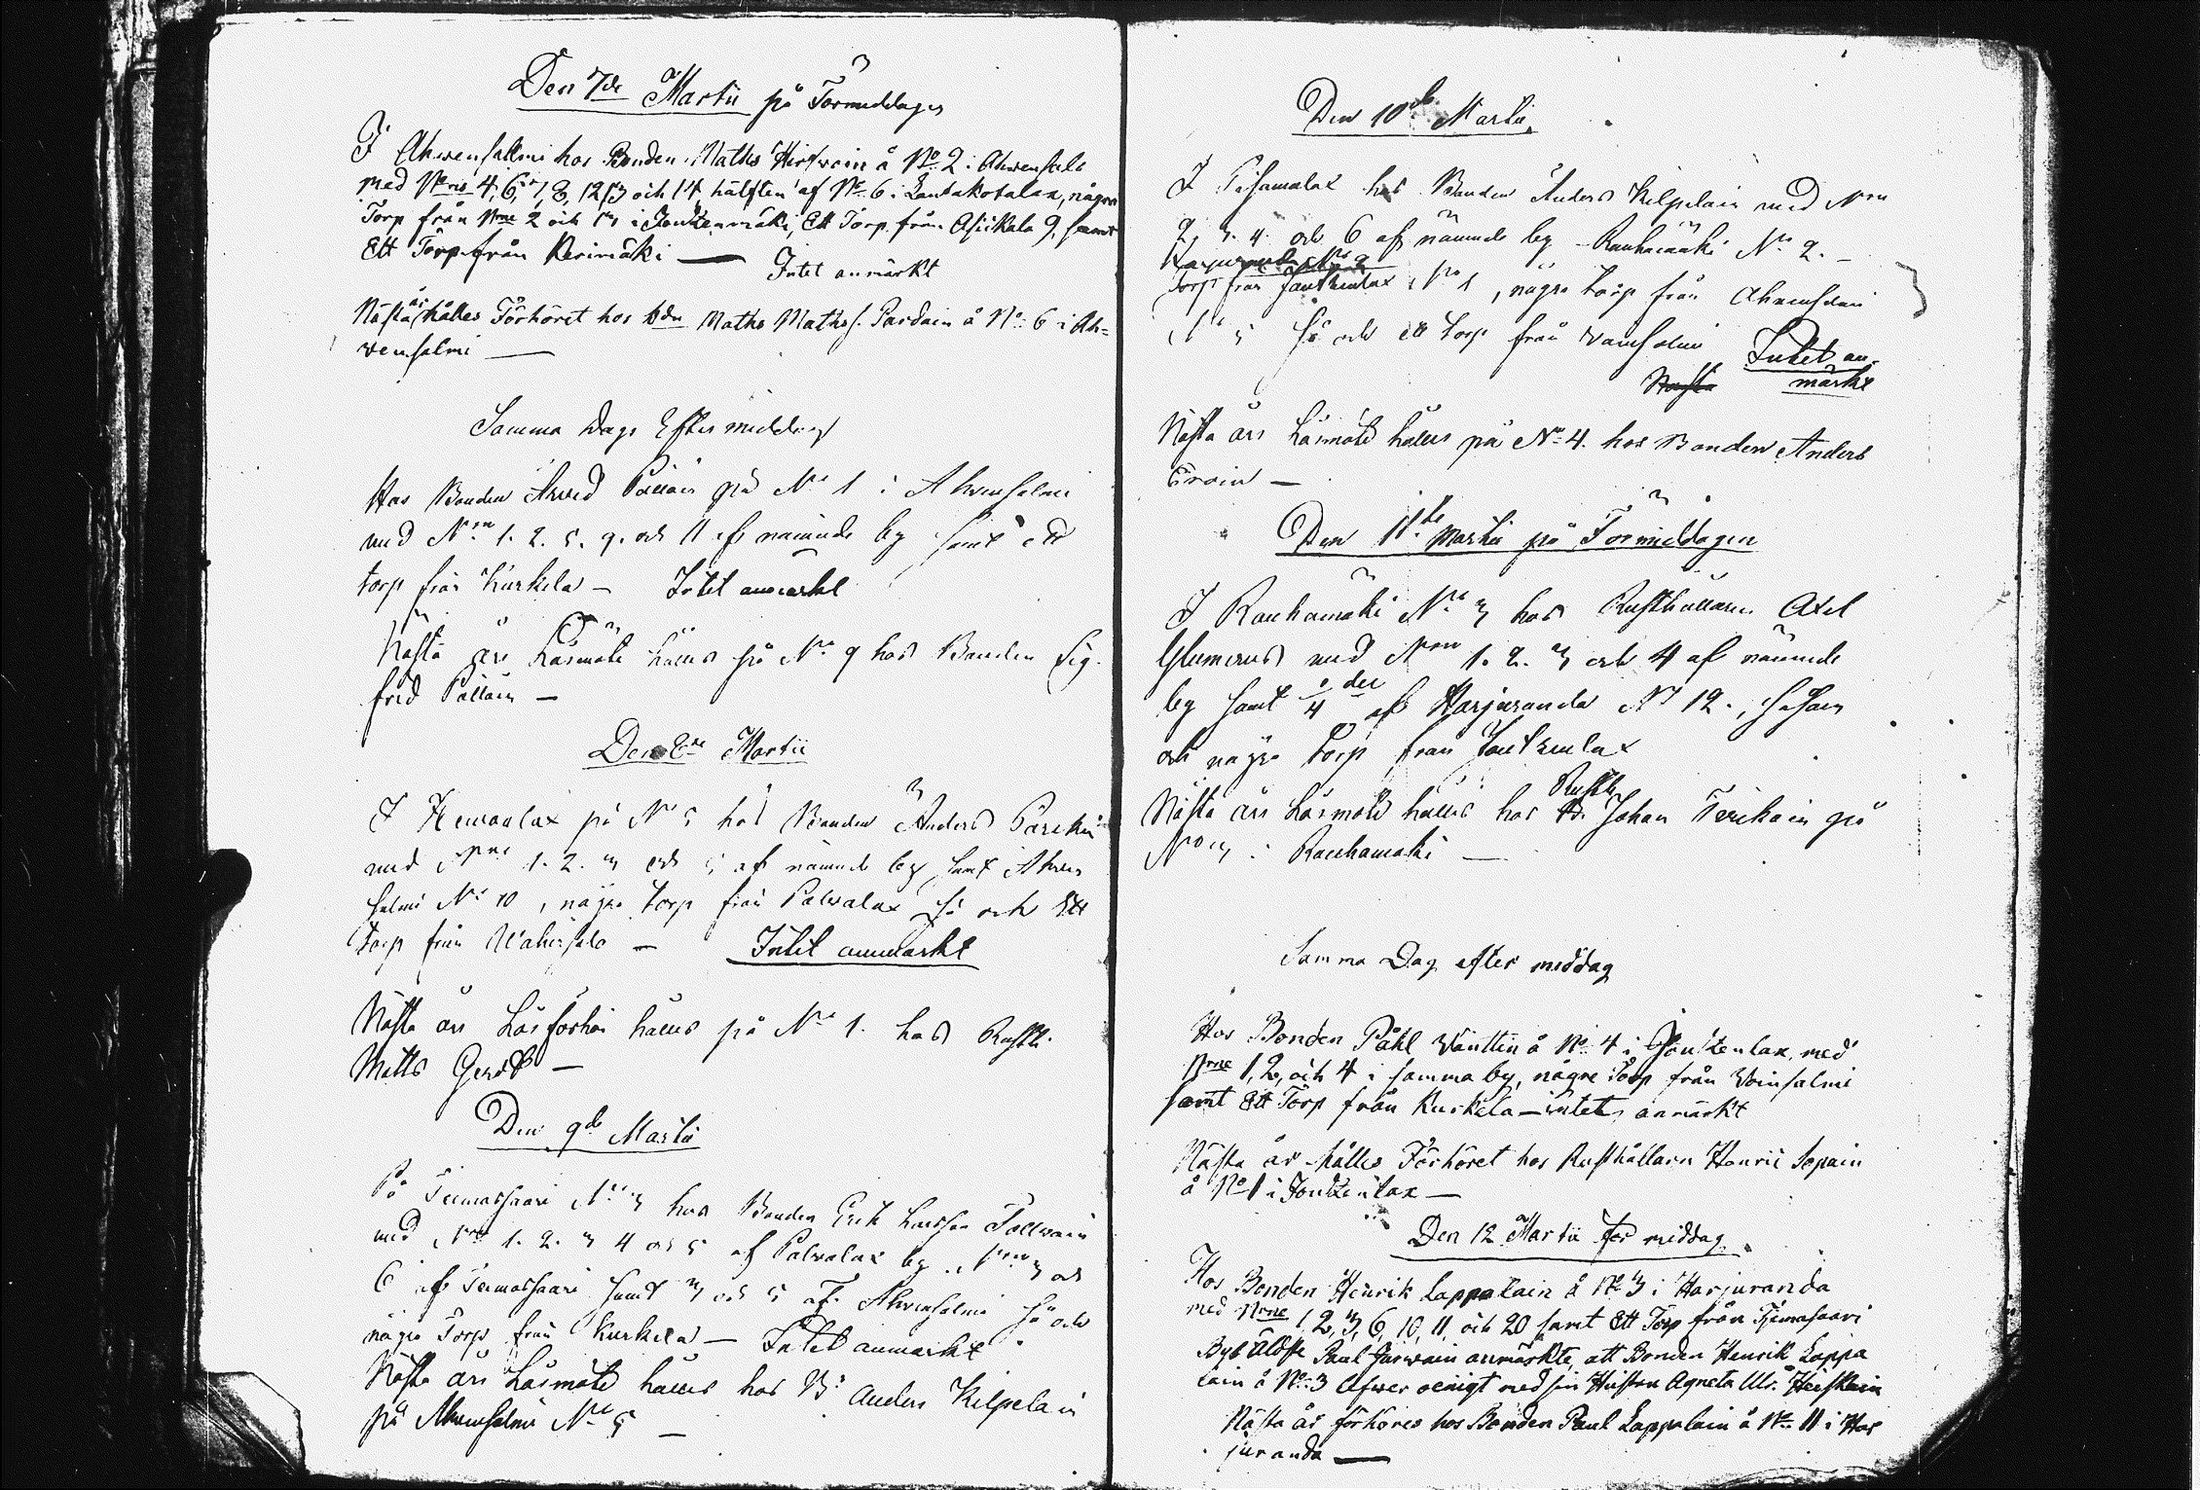 Den 7de Martii på Förmiddagen
I Ahwensallmi hos Bonden Mathes Hirfwoin å No 2 i Ahwensalo
med Nris 4, 6, 7, 8, 12, 13 och 14, hälften af No 6 i Lautakotalax, några
Torp från Nrne 2 och 3 i Joutzenmäki, Ett Torp från Asiikala 9, samt
Ett Torp från Kerimäki — Intet anmärkt
Nästa år hålles Förhöret hos bdn Maths Mathss. Pardain å No 6 i Ah=
wensalmi —
Samma Dags Eftermiddag
Hos Bonden Arwid Pöllöin på No 1 i Ahwensalmi
med Nrne 1. 2. 5. 9. och 11 af nämnde by samt ett
torp från Kurkela — Intet anmärkt
Nästa års Läsmöte hålles på No 9 hos Bonden Sig-
frid Pöllöin —
Den 8de Martii
I Heinaulax på No 5 hos Bonden Anders
med Nrne 1. 2. 3 och 5 af nämnde by, samt Ahwen
salmi No 10, några torp från Palvalax så och Ett
torp från — Intet anmärkt
Nästa års Läsförhör hålles på No 1. hos Rusth.
Matts
Den 9de Martii
På Temassaari No 3 hos Bonden Erik Larsson Tollwain
med Nrne 1. 2. 3 4 och 5 af Palvalax by. Nrne 3 och
6 af Temassaari samt 3 och 5 af Ahwensalmi så och
några Torp från Kurkela — Intet anmärkt
Nästa års Läsmöte hålles hos B: Anders Kilpelain
på Ahwensalmi No 5 —
Den 10de Martii
I Pisamalax hos Bonden Anders Kilpelain med Nrne
2, 3. 4. och 6 af nämnde by Rauhamäki No 2. —
Torp från Joutzenlax No 1, några torp från Ahwensalmi
No 5 så och ett torp från Voinsalmi Intet an-
Nästa märkt
Nästa års Läsmöte hålles på No 4. hos Bonden Anders
—
Den 11te Martii på Förmiddagen
I Rauhamäki No 3 hos Rusthållaren Axel
med Nrne 1. 2. 3 och 4 af nämnde
by samt af Harjuranda No 12.,
och några torp från Joutzenlax
Nästa års Läsmöte hålles hos Rusth. Johan på
No i Rauhamäki —
Samma Dag efter middag
Hos Bonden Påhl Vänttin å No 4 i Joutzenlax, med
Nrne 1, 2, och 4 i samma by, någre Torp från Voinsalmi
samt Ett Torp från Kurkela — intet anmärkt
Nästa år hålles Förhöret hos Rusthållarn Henric Sepain
å No 1 i Joutzenlax —
Den 12 Martii för middag
Hos Bonden Henrik Lappalain å No 3 i Harjuranda
med Nrne 1, 2, 3, 6, 10, 11, och 20 samt Ett Torp från Tjemasaari
Byb Äldste Paul anmärkte, att Bonden Henrik Lappa
lain å No 3 lefwer oenigt med sin Hustru Agneta Ulr. Heiskain
Nästa år förhöres hos Bonden Paul Lappalain å No 11 i Har
juranda —